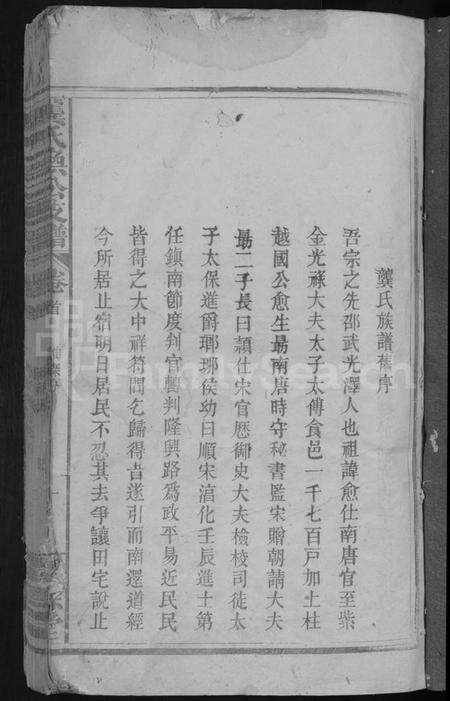 龔氏族譜舊序
吾宗之先邵武光澤人也祖諱愈仕南唐官至紫
金光祿大夫太子太傅食邑一千七百戶加上柱
越國公愈生最南唐時守秘書監宋贈朝請大夫
最二子長曰頴仕宋官歷御史大夫檢校司徒太
子太保進爵瑯琊侯幼曰順宋淳化壬辰進士第
任鎮南節度判官轉判隆興路為政平易近民民
皆得之大中祥符間乞歸得者遂引而南還道經
今所居止宿明日居民不忍其去爭讓田宅說止
龔氏 支譜 卷首
FamilySearch